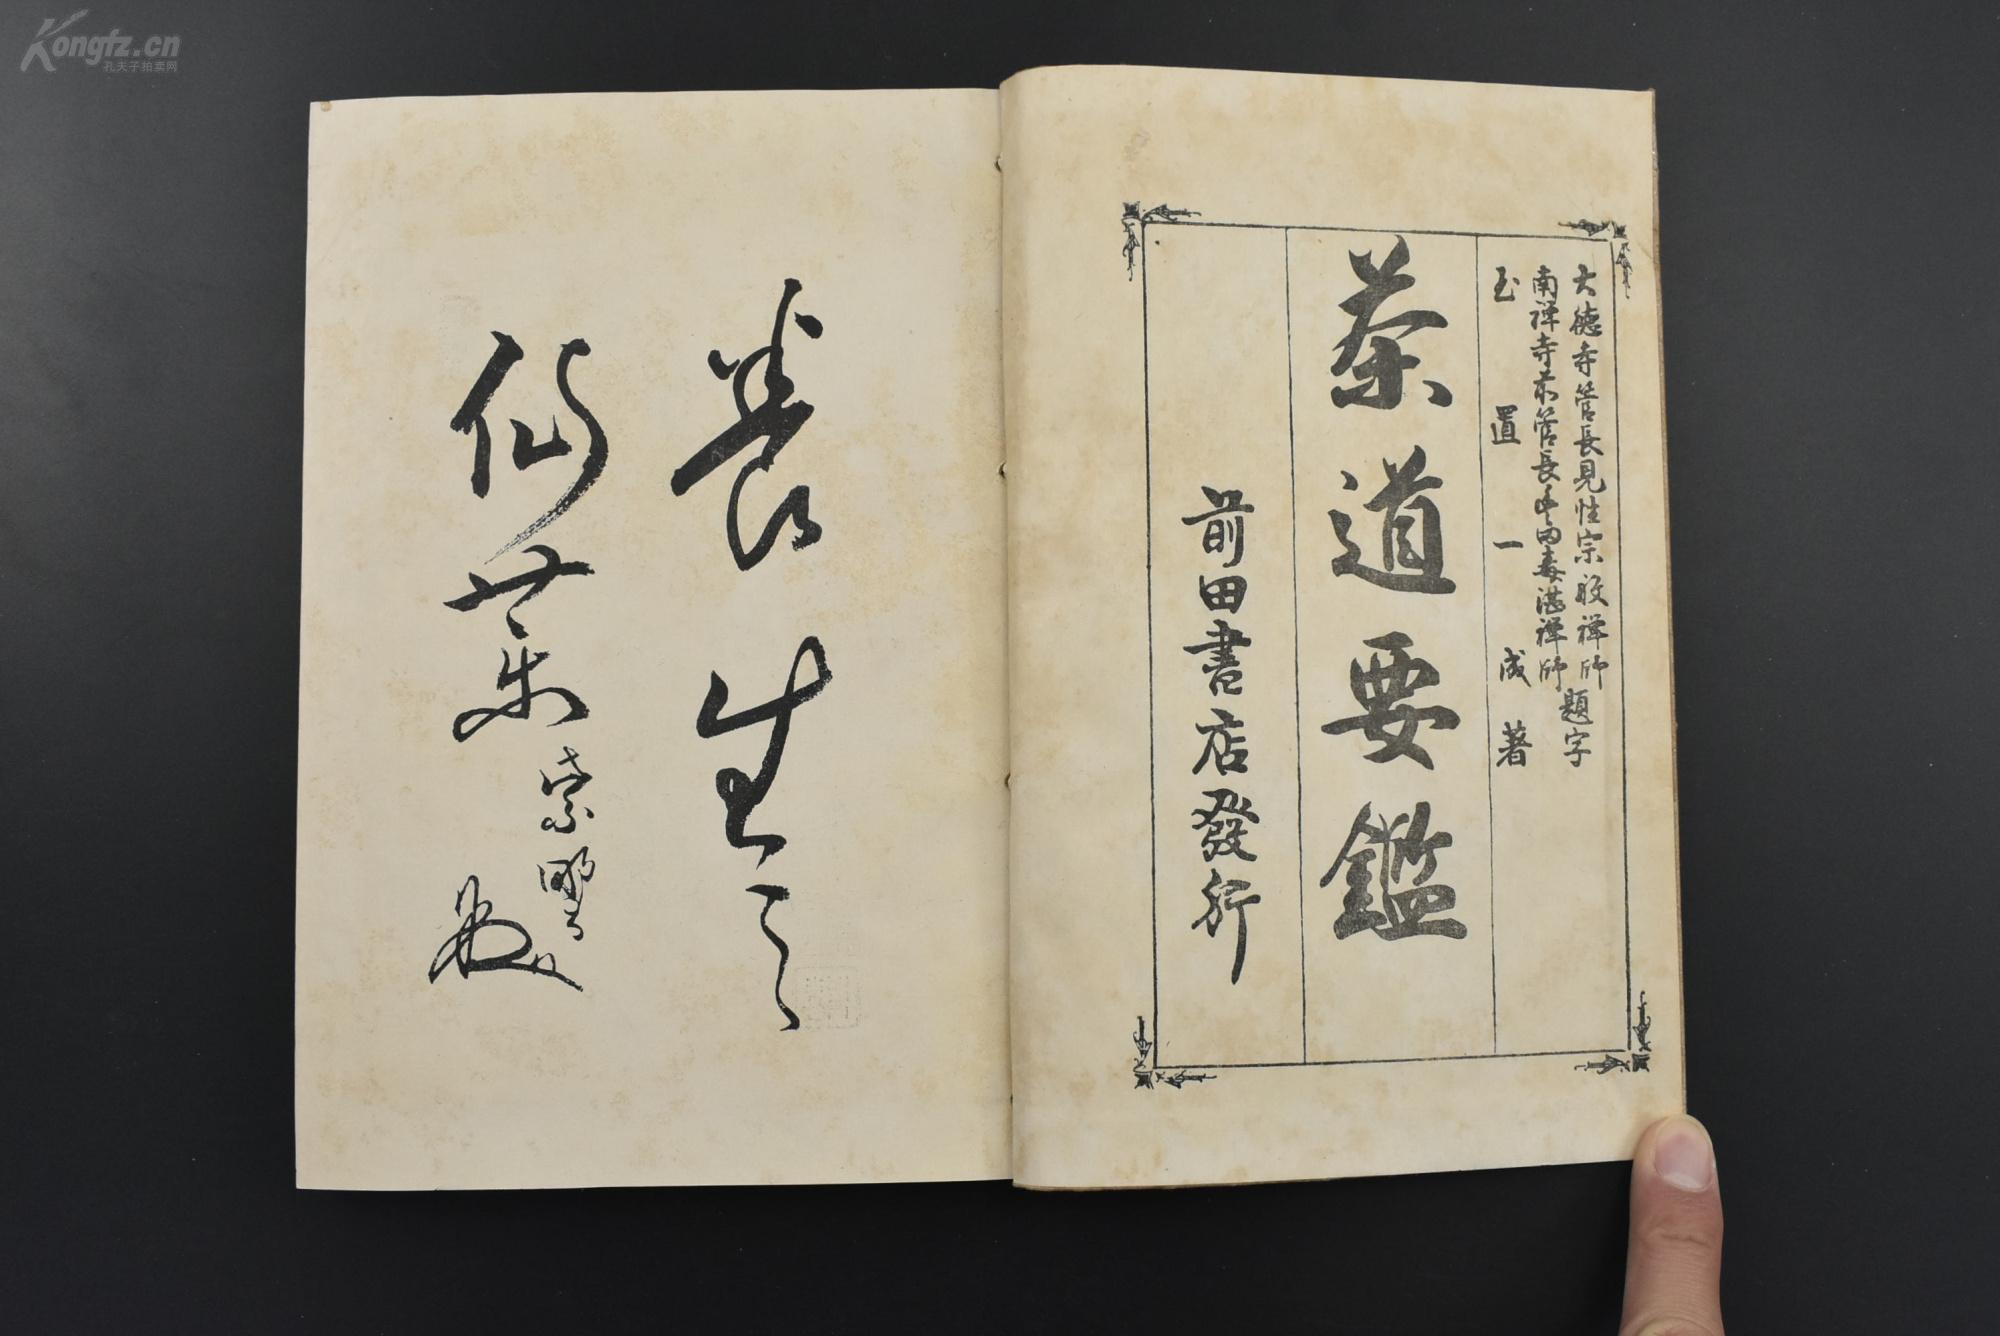 大徳寺管長見性宗般禅師
南禅寺前管長豊田毒湛禅師
題字
玉置一成著
茶道要鑑
前田書店發行
養生之
仙薬
紫野
般
Kongfz.cn
孔夫子拍卖网